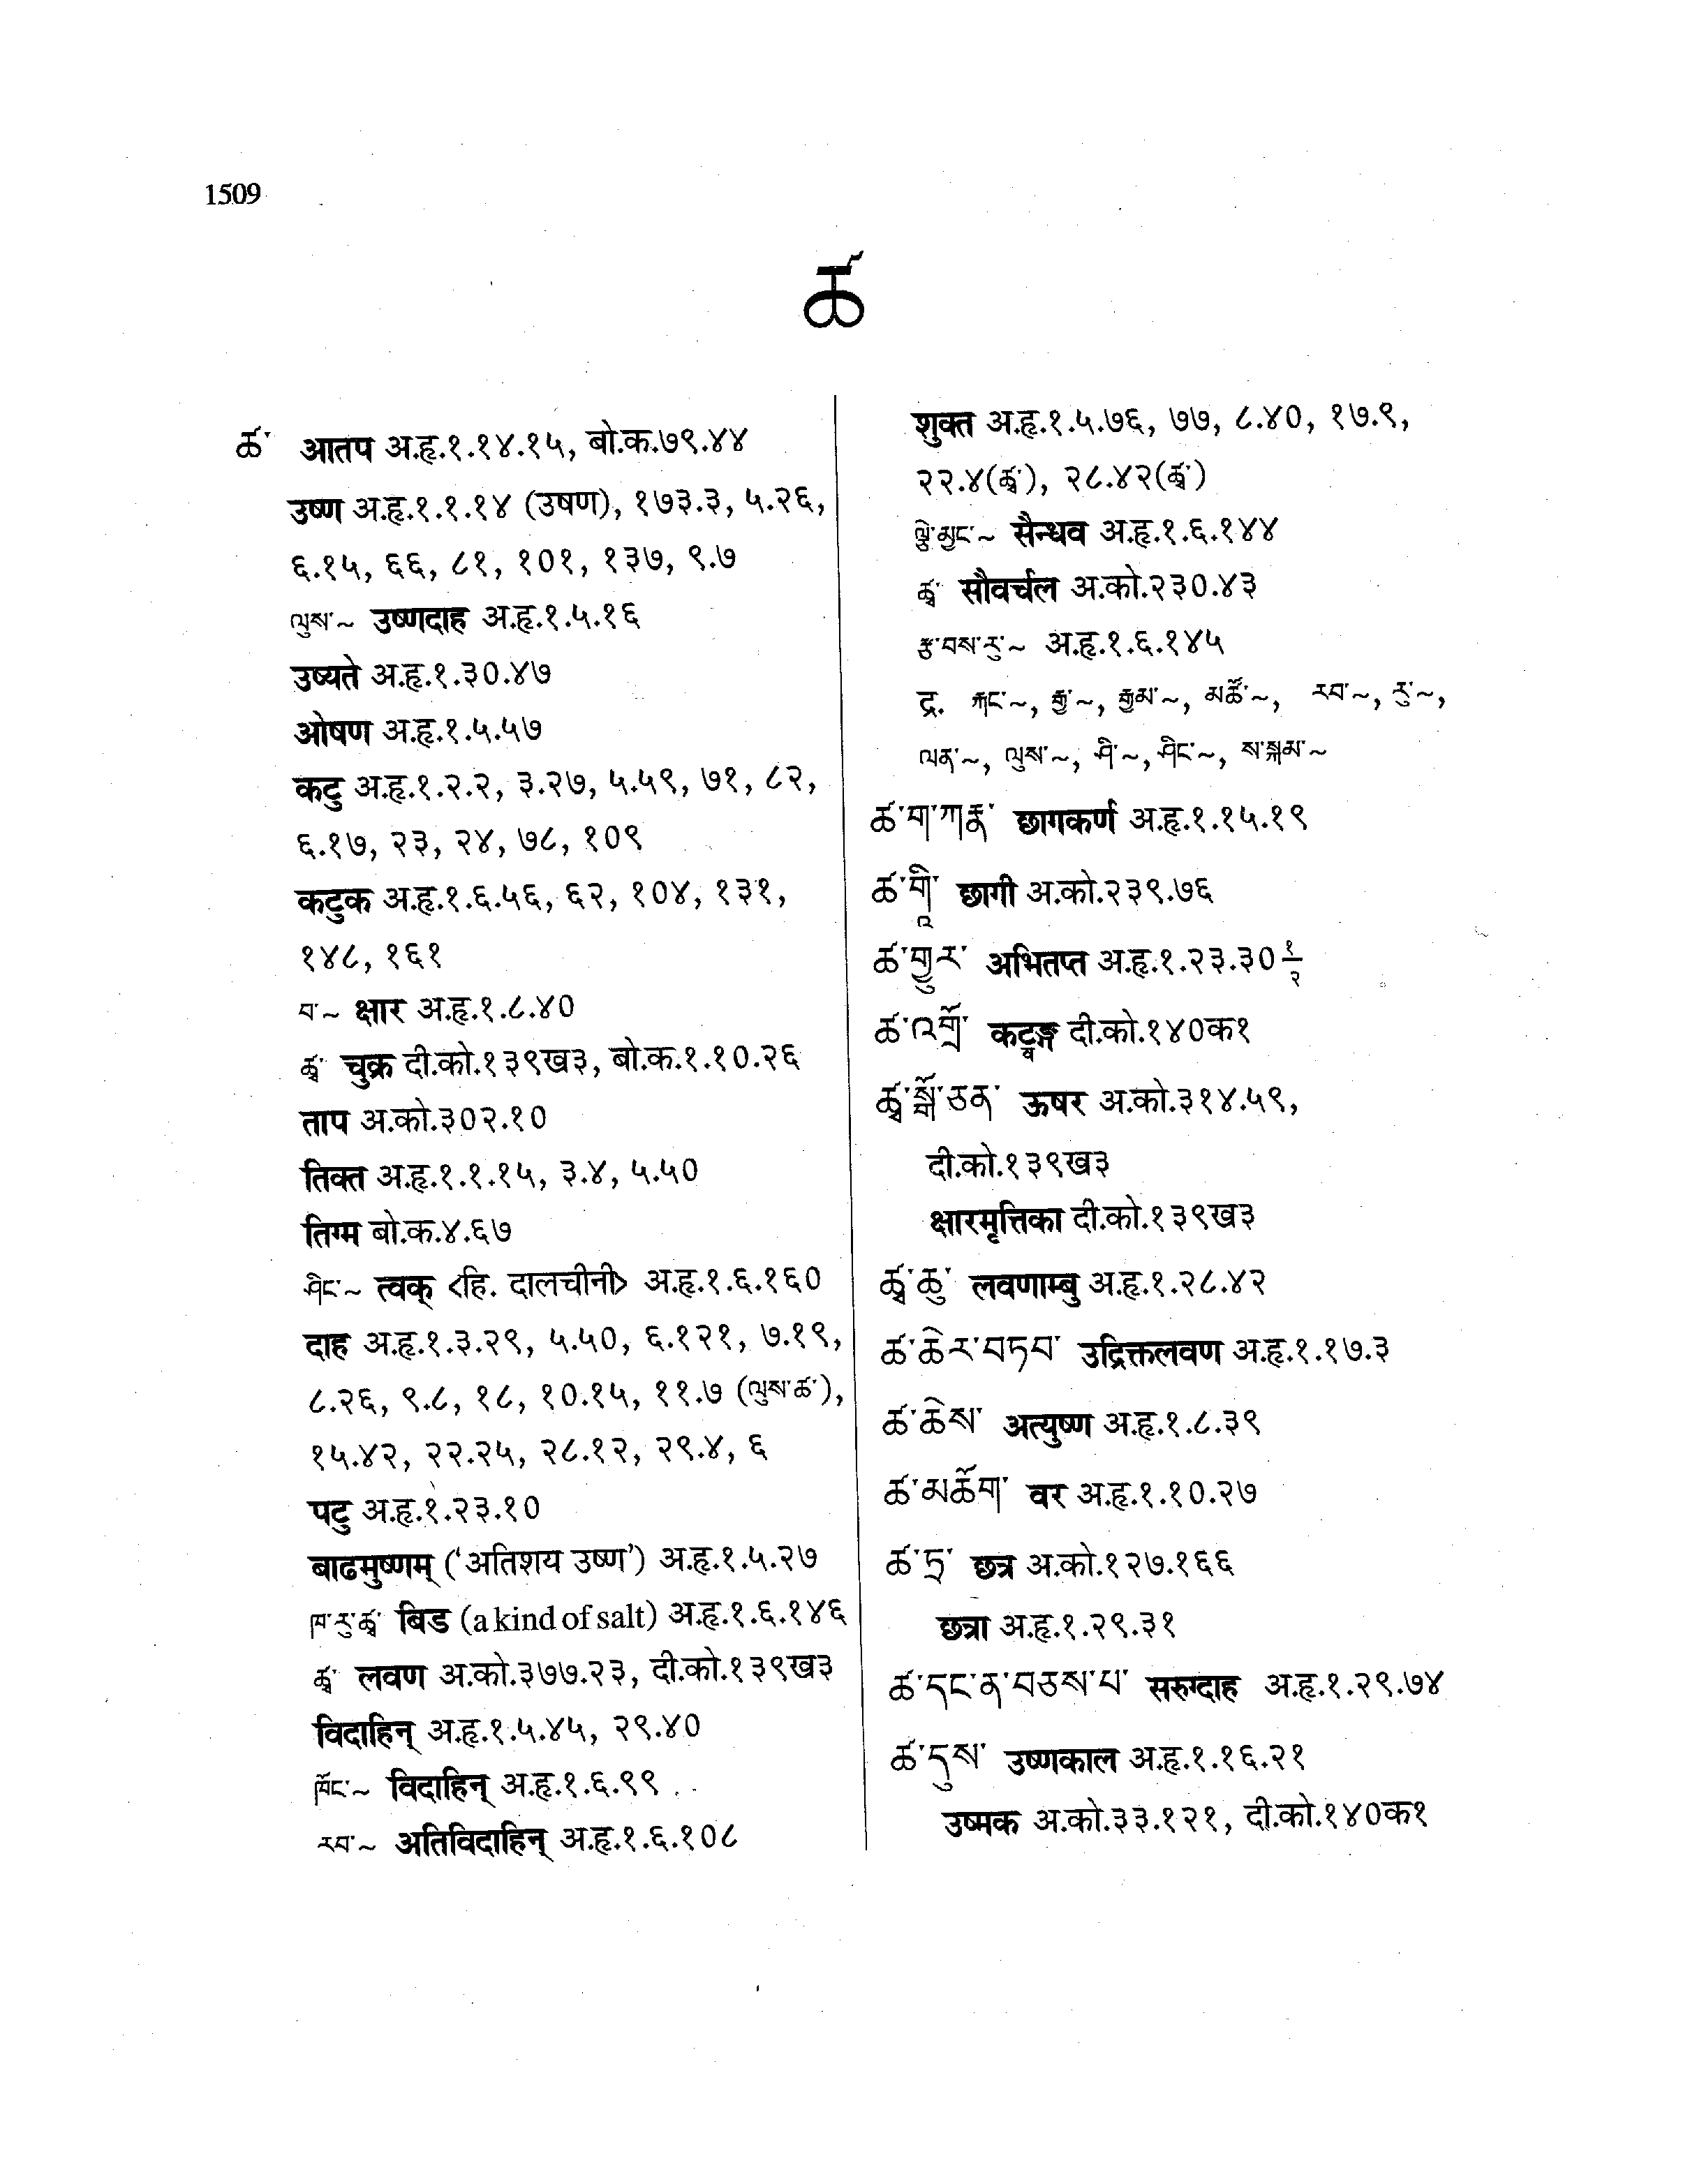 1509
ཚ
ཚ་ आतप अ.हृ.१.१४.१५, बो.क.७९.४४
उष्ण अ.हृ.१.१.१४ (उषण), १७३.३, ५.२६,
६.१५, ६६, ८१, १०१, १३७, ९.७
ལུས་~ उष्णदाह अ.हृ.१.५.१६
उष्यते अ.हृ.१.३०.४७
ओषण अ.हृ.१.५.५७
कटु अ.हृ.१.२.२, ३.२७, ५.५९, ७१, ८२,
६.१७, २३, २४, ७८, १०९
कटुक अ.हृ.१.६.५६, ६२, १०४, १३१,
१४८, १६१
བ་~ क्षार अ.हृ.१.८.४०
ཚྭ་ चुक्र दी.को.१३९ख३, बो.क.१.१०.२६
ताप अ.को.३०२.१०
तिक्त अ.हृ.१.१.१५, ३.४, ५.५०
तिग्म बो.क.४.६७
ཤིང་~ त्वक् <हि. दालचीनी> अ.हृ.१.६.१६०
दाह अ.हृ.१.३.२९, ५.५०, ६.१२१, ७.१९,
८.२६, ९.८, १८, १०.१५, ११.७ (ལུས་ཚ་),
१५.४२, २२.२५, २८.१२, २९.४, ६
पटु अ.हृ.१.२३.१०
बाढमुष्णम् (‘अतिशय उष्ण’) अ.हृ.१.५.२७
ཁ་རུ་ཚྭ་ बिड (a kind of salt) अ.हृ.१.६.१४६
ཚྭ་ लवण अ.को.३७७.२३, दी.को.१३९ख३
विदाहिन् अ.हृ.१.५.४५, २९.४०
ཁོང་~ विदाहिन् अ.हृ.१.६.९९
རབ་~ अतिविदाहिन् अ.हृ.१.६.१०८
शुक्त अ.हृ.१.५.७६, ७७, ८.४०, १७.९,
२२.४(ཚྭ་), २८.४२(ཚྭ་)
~ सैन्धव अ.हृ.१.६.१४४
ཚྭ་ सौवर्चल अ.को.२३०.४३
རྩྭ་བས་རུ་~ अ.हृ.१.६.१४५
द्र. རྐང་~, རྒྱ་~, རྒྱམ་~, མཚོ་~, རབ་~, རུ་~,
ལན་~, ལུས་~, ཤི་~, ཤིང་~, ས་སྐམ་~
ཚ་ག་ཀརྞ་ छागकर्ण अ.हृ.१.१५.१९
ཚ་གཱི་ छागी अ.को.२३९.७६
ཚ་གྱུར་ अभितप्त अ.हृ.१.२३.३० १/२
ཚ་འགྲོ་ कट्वङ्ग दी.को.१४०क१
ཚྭ་སྒོ་ཅན་ ऊषर अ.को.३१४.५९,
दी.को.१३९ख३
क्षारमृत्तिका दी.को.१३९ख३
ཚྭ་ཆུ་ लवणाम्बु अ.हृ.१.२८.४२
ཚ་ཆེར་བཏབ་ उद्रिक्तलवण अ.हृ.१.१७.३
ཚ་ཆེས་ अत्युष्ण अ.हृ.१.८.३९
ཚ་མཆོག་ वर अ.हृ.१.१०.२७
ཚ་ཏྲ་ छत्र अ.को.१२७.१६६
छत्रा अ.हृ.१.२९.३१
ཚ་དང་ན་བཅས་པ་ सरुग्दाह अ.हृ.१.२९.७४
ཚ་དུས་ उष्णकाल अ.हृ.१.१६.२१
उष्मक अ.को.३३.१२१, दी.को.१४०क१